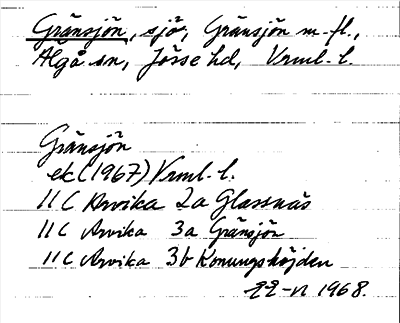 Gränsjön, sjö, Gränsjön m. fl.,
Älgå sn, Jösse hd, Vrml. l.
Gränsjön
ek (1967) Vrml. l.
11 C Arvika 2a Glassnäs
11 C Arvika 3a Gränsjön
11 C Arvika 3b Konungshöjden
1968.